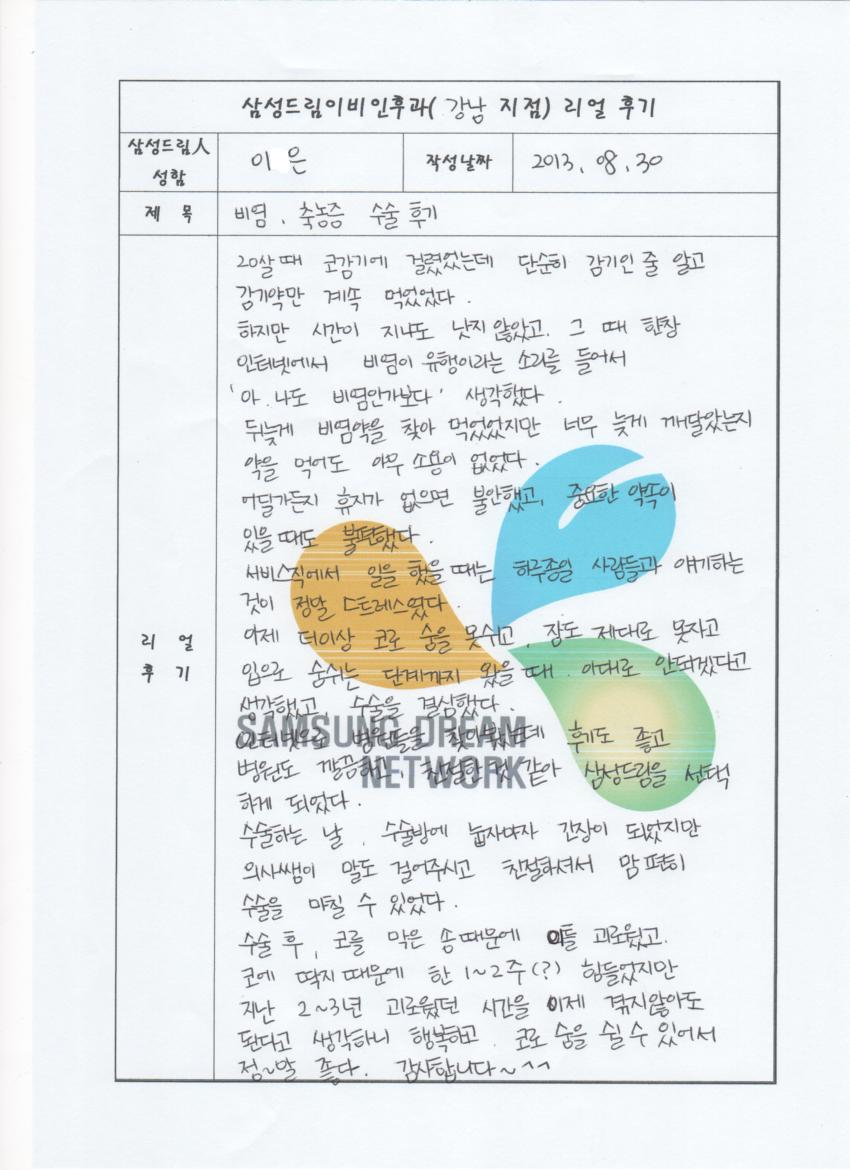 삼성드림이비인후과( 강남 지점) 리얼 후기
삼성드림人 성함
이 은
작성날짜
2013. 08. 30
제 목
비염, 축농증 수술 후기
리 얼 후 기
20살 때 코감기에 걸렸었는데 단순히 감기인 줄 알고
감기약만 계속 먹었었다.
하지만 시간이 지나도 낫지 않았고. 그 때 한창
인터넷에서 비염이 유행이라는 소리를 들어서
'아. 나도 비염인가보다' 생각했다.
뒤늦게 비염약을 찾아 먹었었지만 너무 늦게 깨달았는지
약을 먹어도 아무 소용이 없었다.
어딜가든지 휴지가 없으면 불안했고, 중요한 약속이
있을 때도 불편했다.
서비스직에서 일을 했을 때는 하루종일 사람들과 얘기하는
것이 정말 스트레스였다.
이제 더이상 코로 숨을 못쉬고, 잠도 제대로 못자고
입으로 숨쉬는 단계까지 왔을 때. 이대로 안되겠다고
생각했고, 수술을 결심했다.
인터넷으로 병원들을 찾아봤는데 후기도 좋고
병원도 깔끔하고, 친절한 것 같아 삼성드림을 선택
하게 되었다.
수술하는 날, 수술방에 눕자마자 긴장이 되었지만
의사쌤이 말도 걸어주시고 친절하셔서 맘 편히
수술을 마칠 수 있었다.
수술 후, 코를 막은 솜 때문에 이틀 괴로웠고.
코에 딱지 때문에 한 1~2주(?) 힘들었지만
지난 2~3년 괴로웠던 시간을 이제 겪지않아도
된다고 생각하니 행복하고. 코로 숨을 쉴 수 있어서
정~말 좋다. 감사합니다~^^
SAMSUNG DREAM
NETWORK